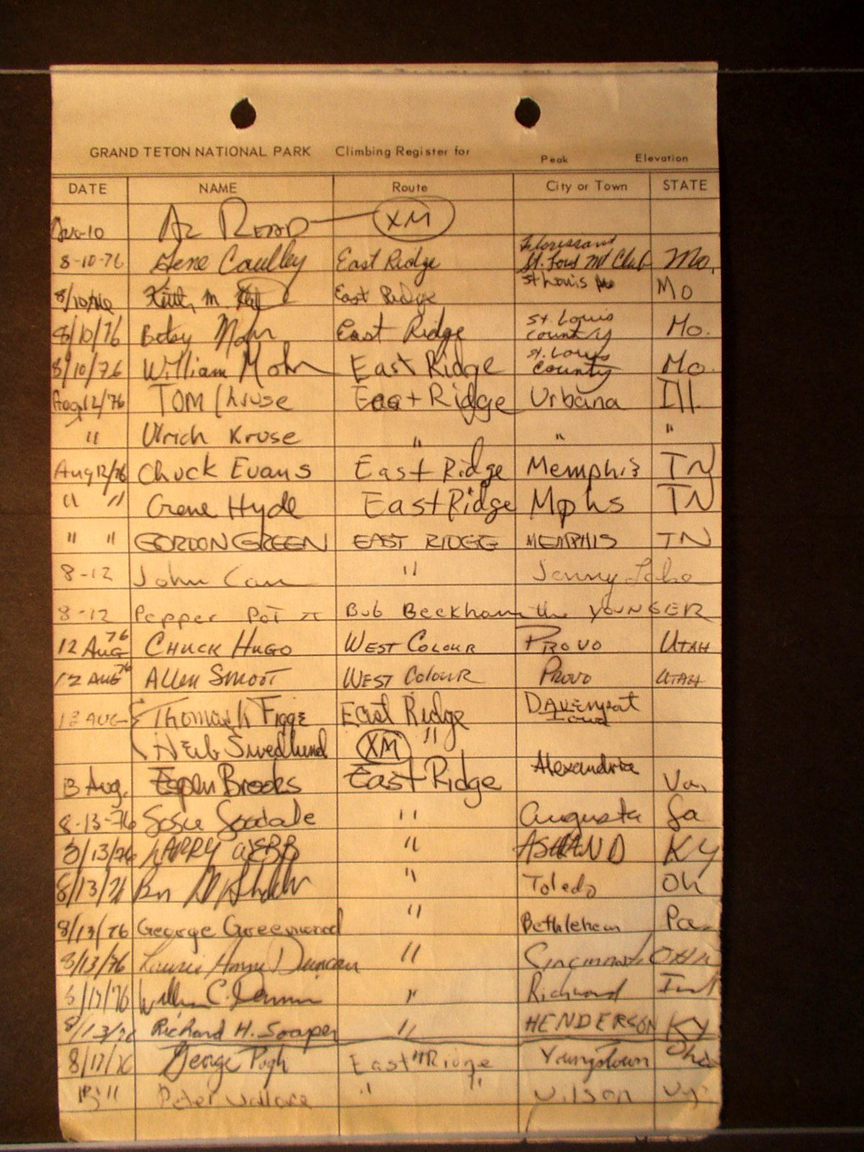 GRAND TETON NATIONAL PARK Climbing Register for Peak Elevation
DATE NAME Route City or Town STATE
Aug-10 Al Read XM
8-10-76 Gene Caulley East Ridge Florissant St. Louis Mt Club Mo.
8/10/76 Keith M. East Ridge St Louis Mo
8/10/76 Betsy Mohr East Ridge St. Louis county Mo.
8/10/76 William Mohr East Ridge St. Louis County Mo.
Aug 12/76 TOM Kruse East Ridge Urbana Ill.
" Ulrich Kruse " " "
Aug 12/76 Chuck Evans East Ridge Memphis TN
" " Gene Hyde East Ridge Mphs TN
" " GORDON GREEN EAST RIDGE MEMPHIS TN
8-12 John Carr " Jenny Lake
8-12 Pepper Pot π Bub Beckham the YOUNGER
12 Aug 76 CHUCK HUGO WEST COLOUR PROVO UTAH
12 AUG 76 ALLEN SMOOT WEST COLOUR PROVO UTAH
13 AUG Thomas Figge East Ridge Davenport Iowa
Herb Swedlund XM "
13 Aug. Espen Brooks East Ridge Alexandria Va.
8-13-76 Susie " Augusta Ga
8/13/76 LARRY WEBB " ASHLAND KY
8/13/76 " Toledo Oh
8/13/76 George Greenwood " Bethlehem Pa.
8/13/76 Laurie Anne Duncan " Cincinnati OHIO
8/13/76 William C. " Richmond Ind
8/13/76 Richard H. Soaper " HENDERSON KY
8/17/76 George Pugh East Ridge Youngstown Ohio
" " Peter Wallace " " Wilson Wy.